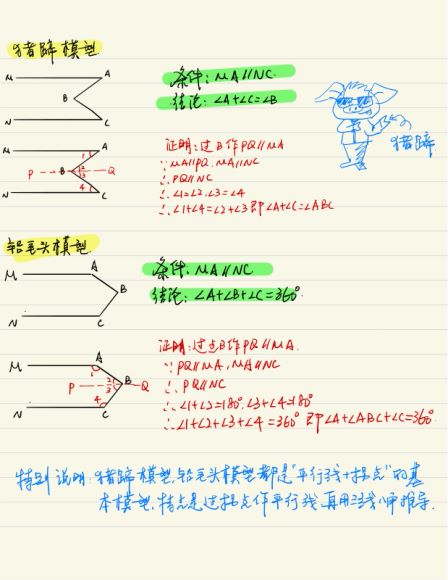 猪蹄模型
M A
B
N C
条件: MA∥NC.
结论: ∠A+∠C=∠B
猪蹄
M A
1
P B 2 3 Q
4
N C
证明: 过B作PQ∥MA
∵MA∥PQ, MA∥NC
∴PQ∥NC
∴∠1=∠2, ∠3=∠4
∴∠1+∠4=∠2+∠3 即∠A+∠C=∠ABC
铅笔头模型
M A
B
N C
条件. MA∥NC
结论: ∠A+∠B+∠C=360°
M A
1
P 2 3 B Q
4
N C
证明: 过点B作PQ∥MA.
∵PQ∥MA, MA∥NC
∴PQ∥NC
∴∠1+∠2=180°, ∠3+∠4=180°
∴∠1+∠2+∠3+∠4=360° 即∠A+∠ABC+∠C=360°
特别说明: 猪蹄模型, 铅笔头模型都是"平行线+拐点"的基
本模型, 特点是过拐点作平行线再用三线八角推导.